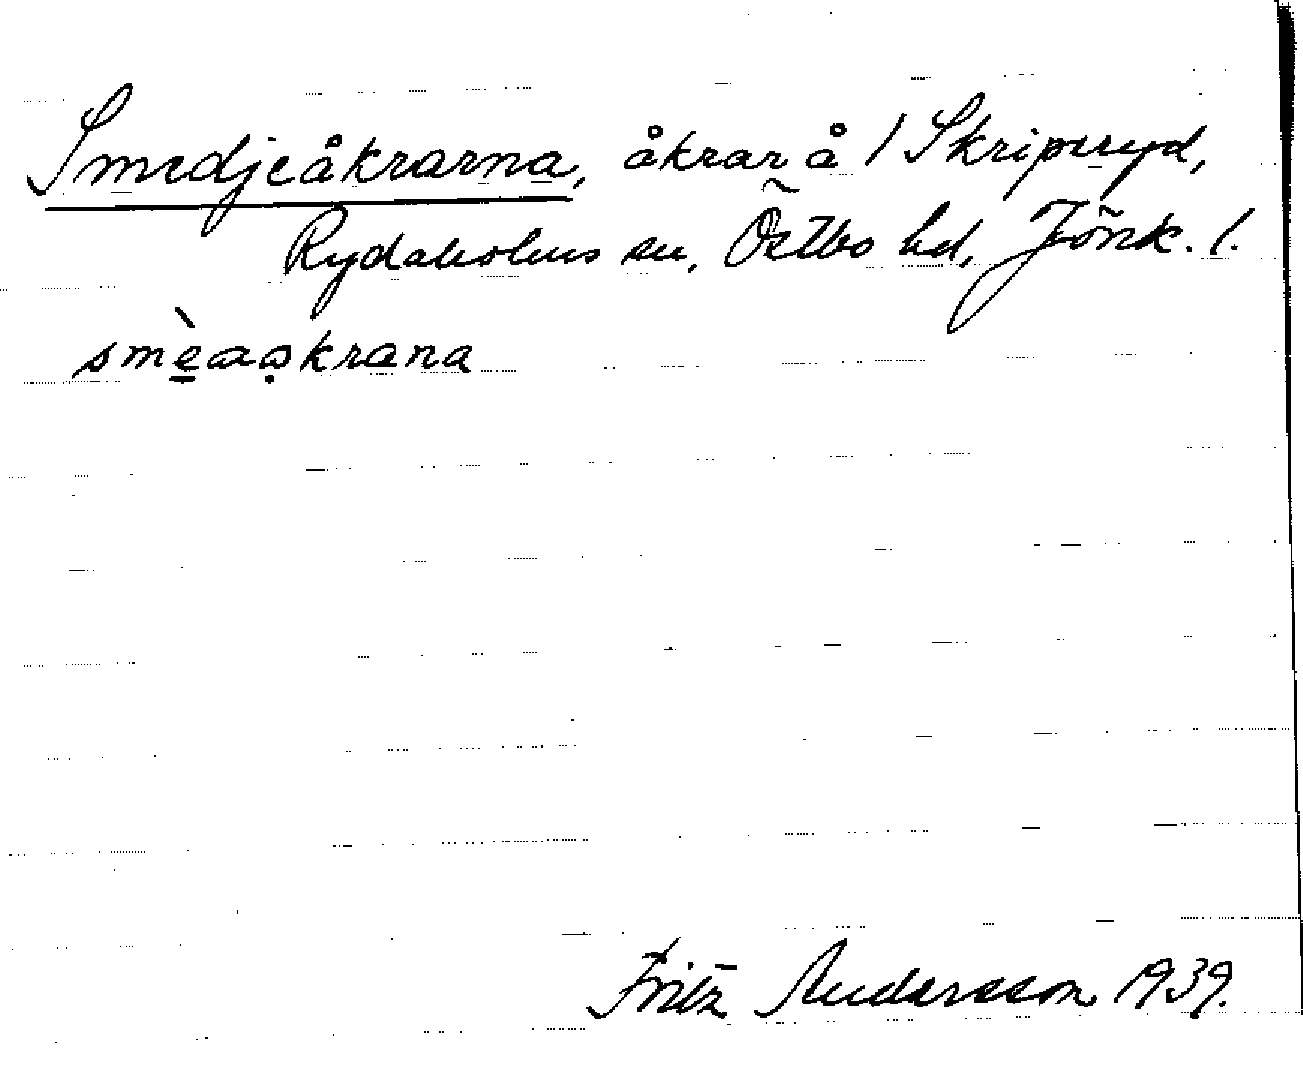 Smedjeåkrarna, åkrar å / Skriperyd,
Rydaholms sn, Östbo hd, Jönk. l.
smè̠aọkrana
Fritz Andersson 1939.